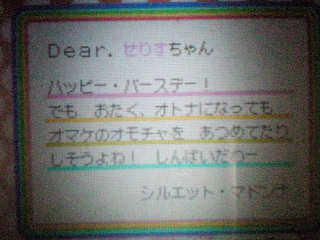 Dear. せりすちゃん
ハッピー・バースデー！
でも おたく、オトナになっても
オマケのオモチャを あつめてたり
しそうよね！ しんぱいだゥー
シルエット・マドンナ